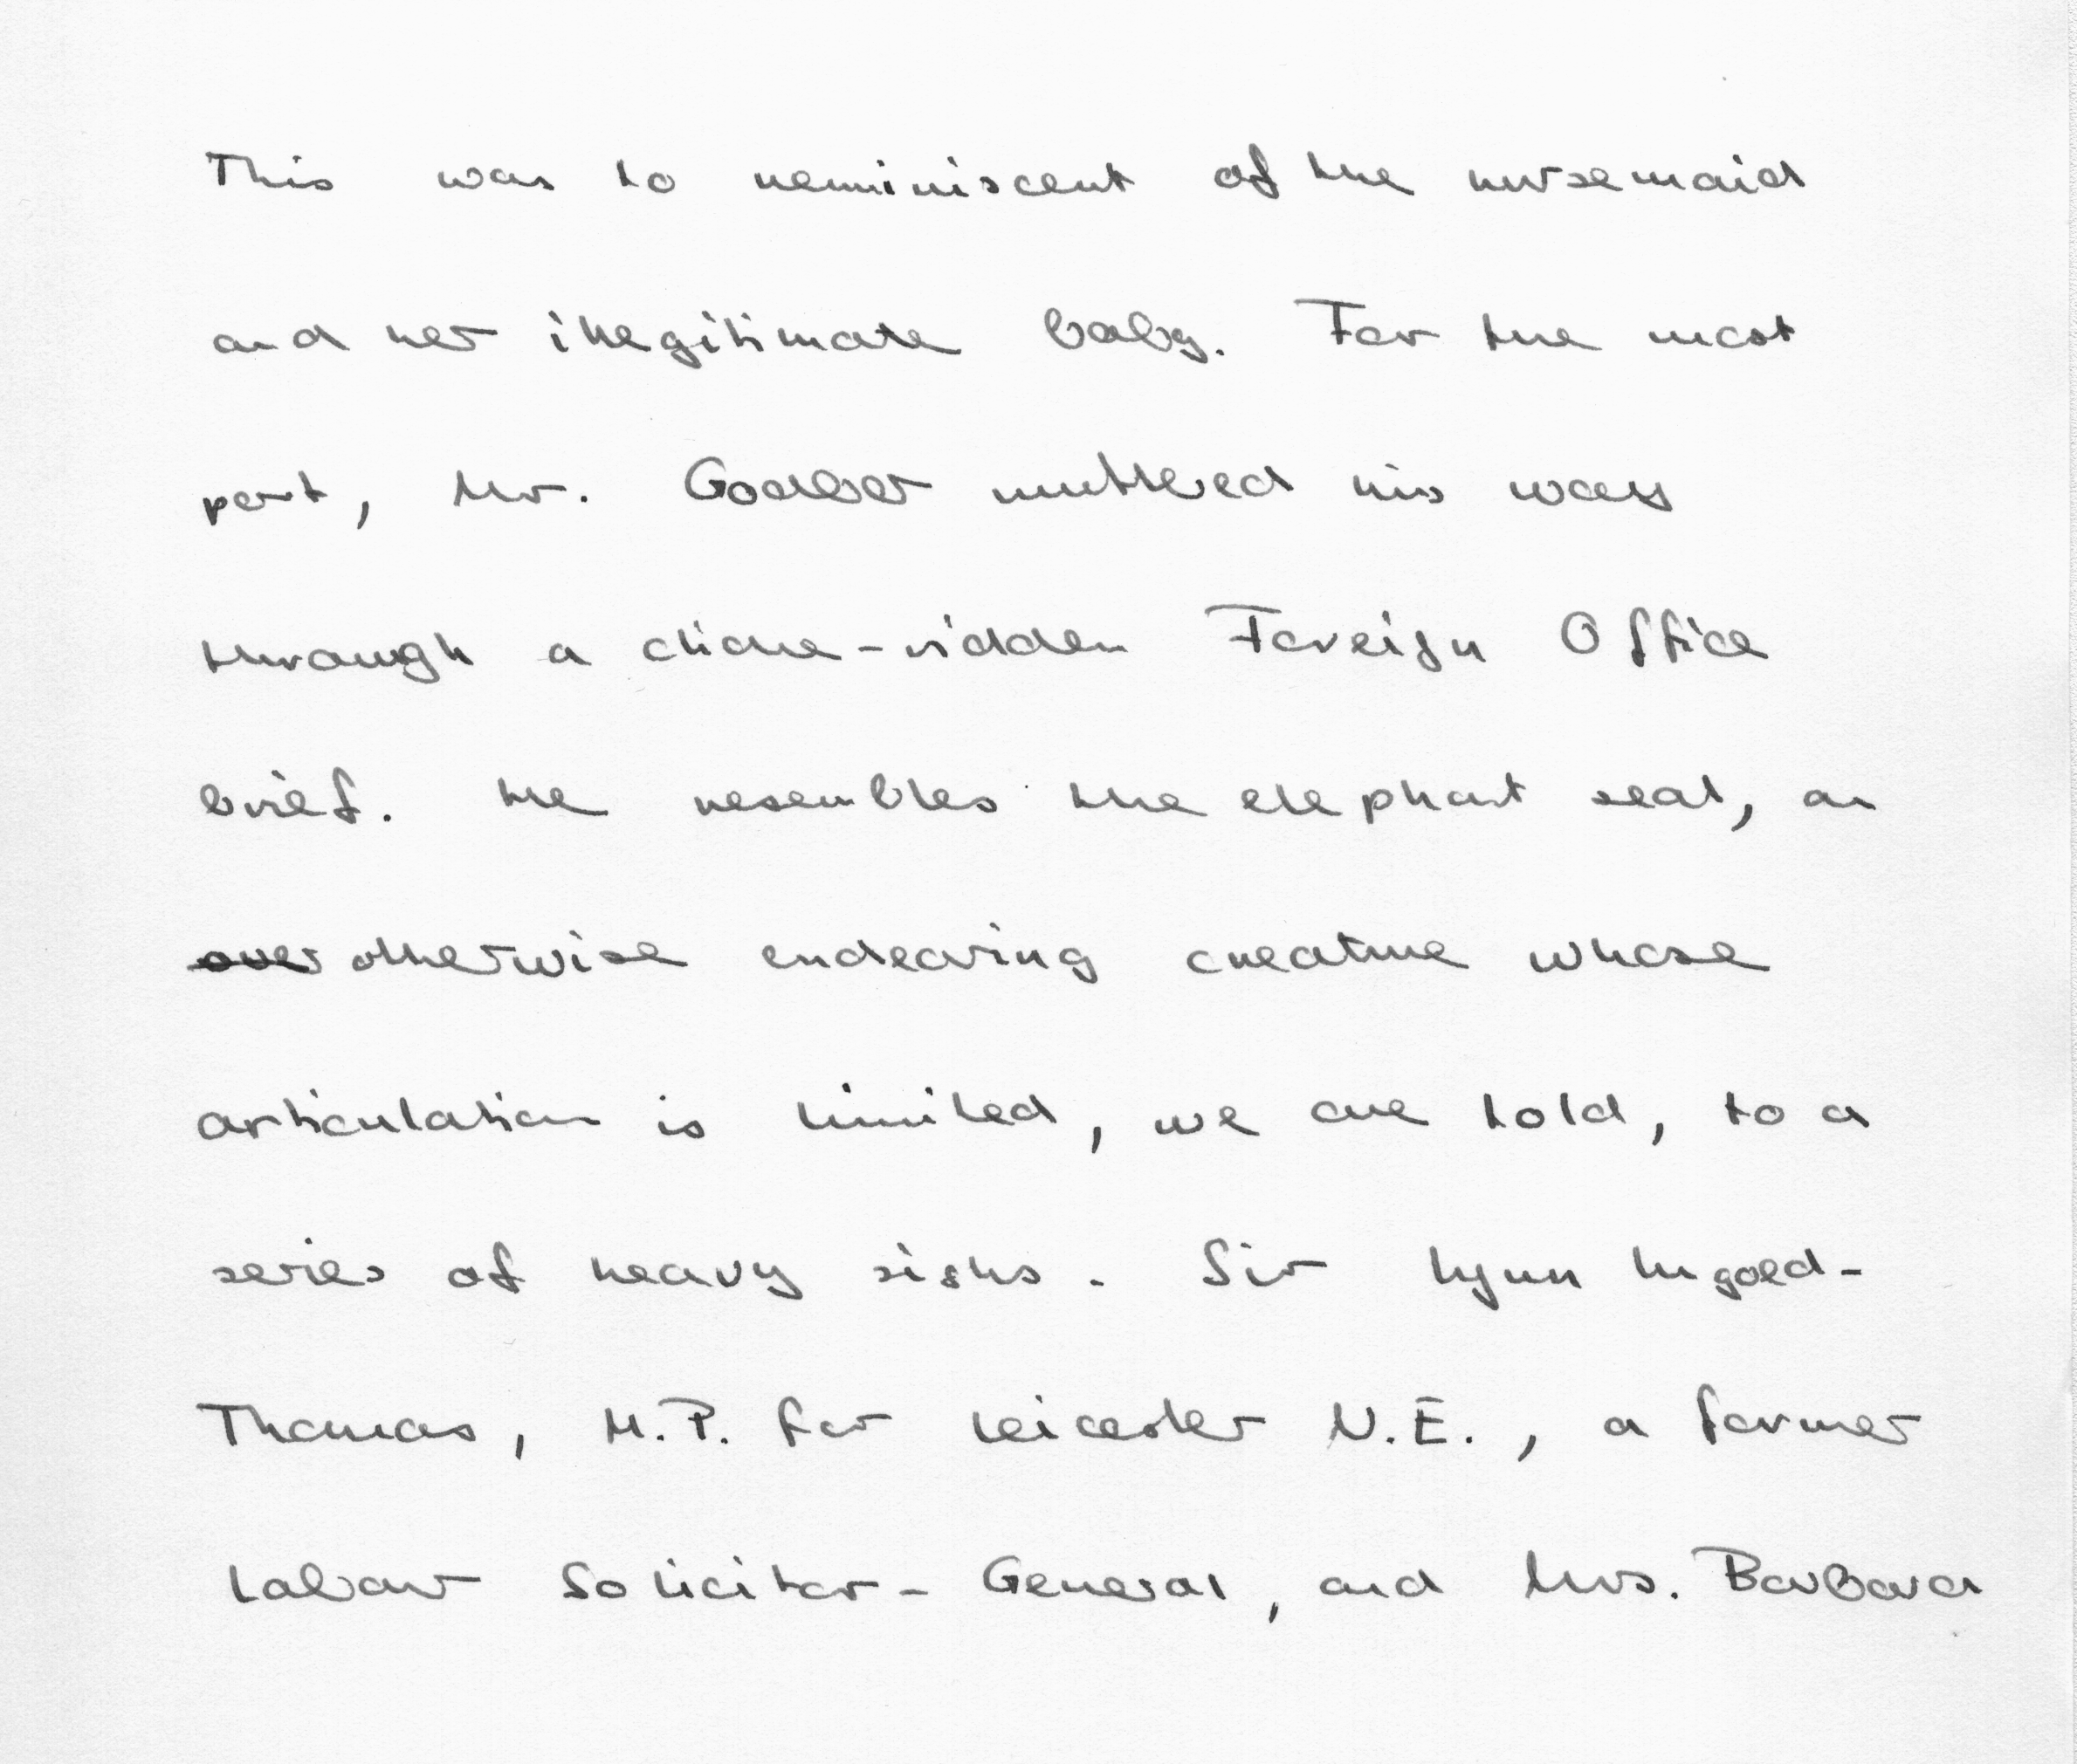 This was to reminiscent of the nursemaid
and her illegitimate baby. For the most
part, Mr. Godber muttered his way
through a cliche-ridden Foreign Office
brief. He resembles the elephant seal, an
over otherwise endearing creature whose
articulation is limited, we are told, to a
series of heavy sighs. Sir Lynn Ungoed-
Thomas, M.P. for Leicester N.E., a former
Labour Solicitor-General, and Mrs. Barbara